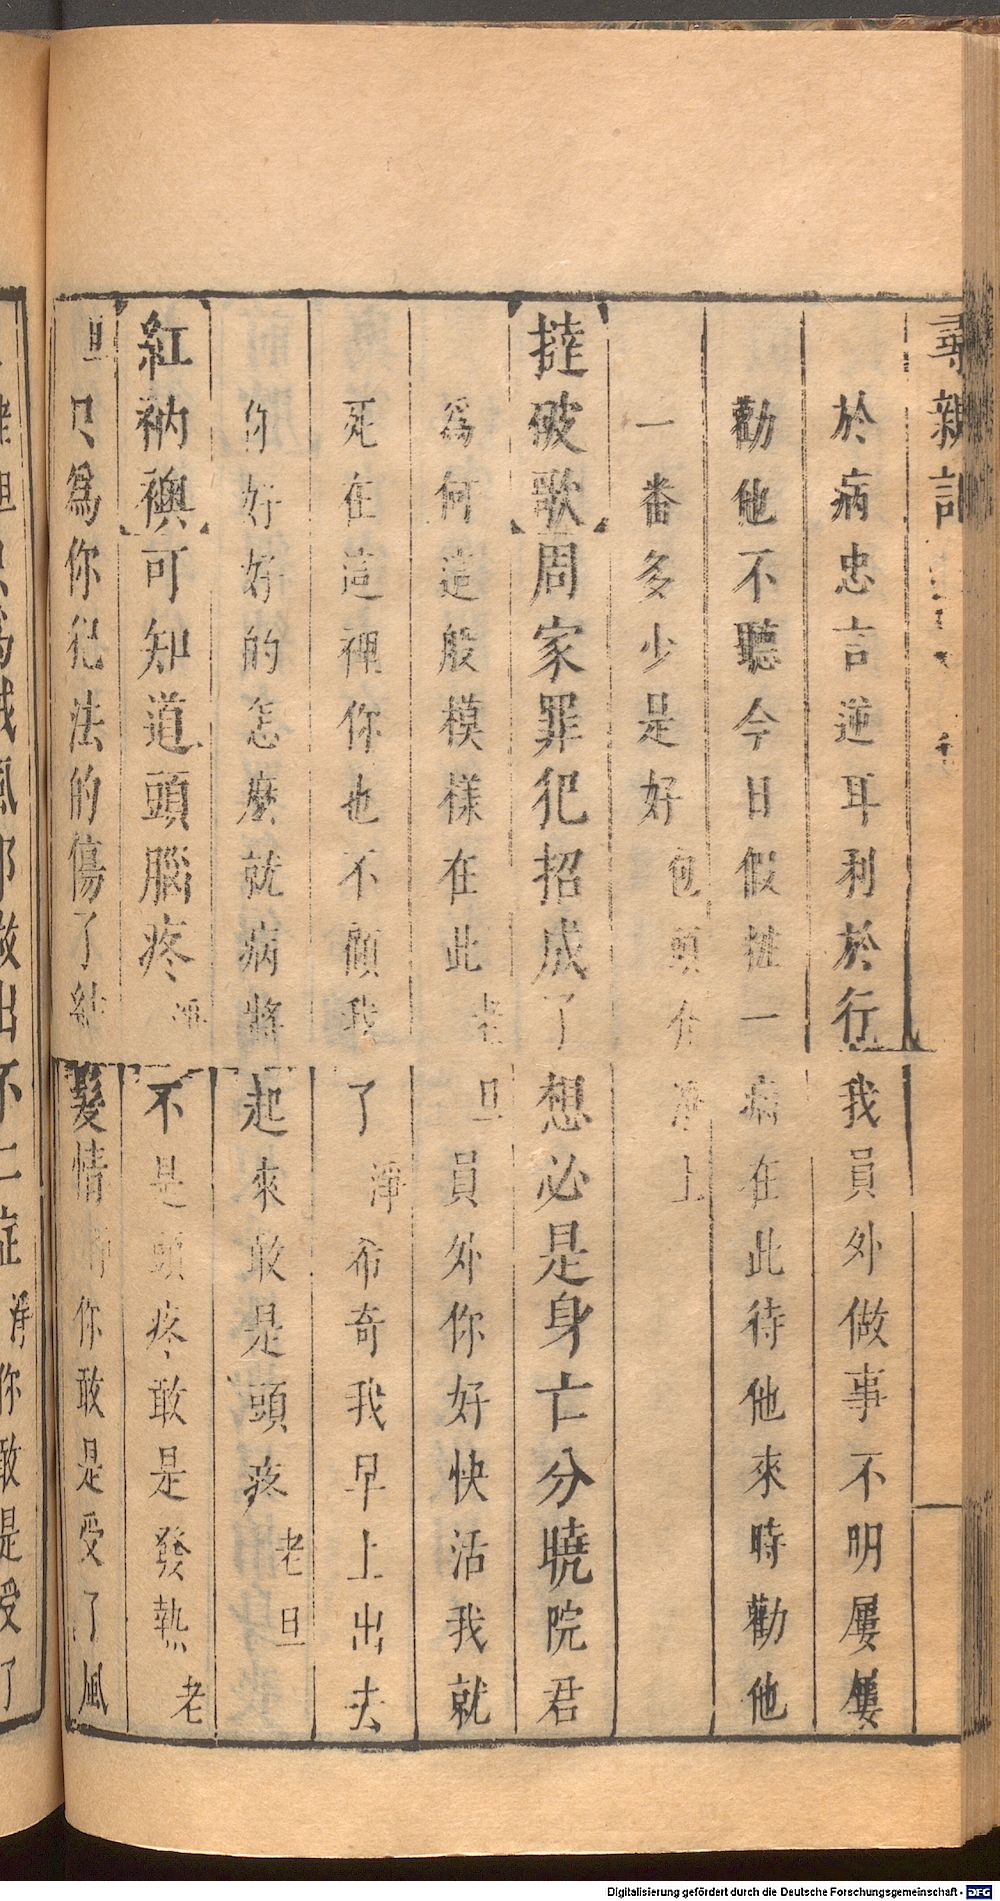 尋親記
於病忠言逆耳利於行我員外做事不明屢屢
勸他不聽今日假粧一病在此待他來時勸他
一番多少是好包頭介淨上
撻破歌周家罪犯招成了想必是身亡分曉院君
爲何這般模樣在此老旦員外你好快活我就
死在這裡你也不顧我了淨希奇我早上出去
你好好的怎麽就病將起來敢是頭疼老旦
紅衲襖可知道頭腦疼淨不是頭疼敢是發熱老
旦只爲你犯法的傷了結髮情淨你敢是受了風
淨你敢是受了
Digitalisierung gefördert durch die Deutsche Forschungsgemeinschaft - DFG